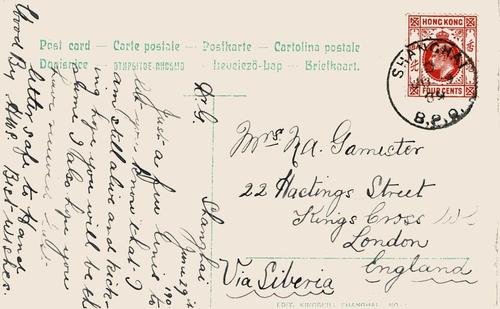 Post card — Carte postale — Postkarte — Cartolina postale
Dopisnice — ОТКРЫТОЕ ПИСЬМО — Levelező-Lap — Briefkaart.
HONG KONG
FOUR CENTS
SHANGHAI
09
B.P.O.
Mrs N.A. Gamester
22 Hastings Street
Kings Cross W.C.
London
England
Via Siberia
Shanghai
June 29
190
Just a few lines to
let you know that I
am still alive and kick-
ing hope you will be th
same I also hope you
have received
letter safe to Hand.
Good By Best wishes.
EDIT. KINGSHILL SHANGHAI. No.